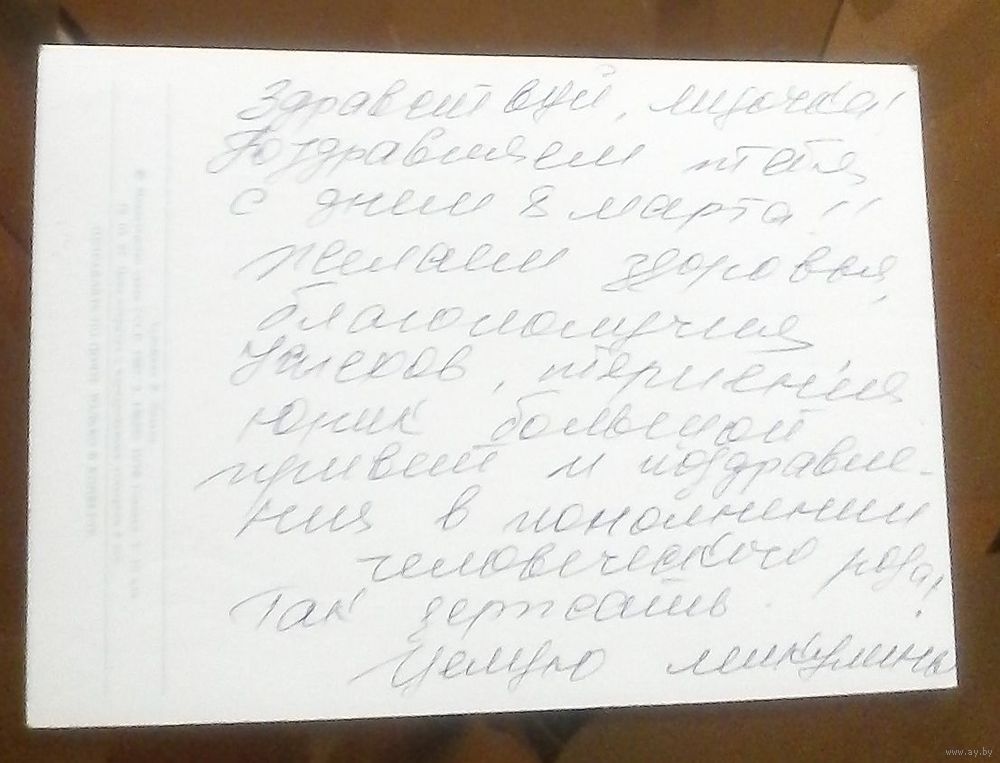 Здравствуй, Лидочка!
Поздравляем тебя
с днем 8 марта!!
Желаем здоровья,
благополучия
успехов, терпения
большой
привет и поздравле-
ния в пополнении
человеческого рода!
Так держать.
Целую Микулины
www.ay.by